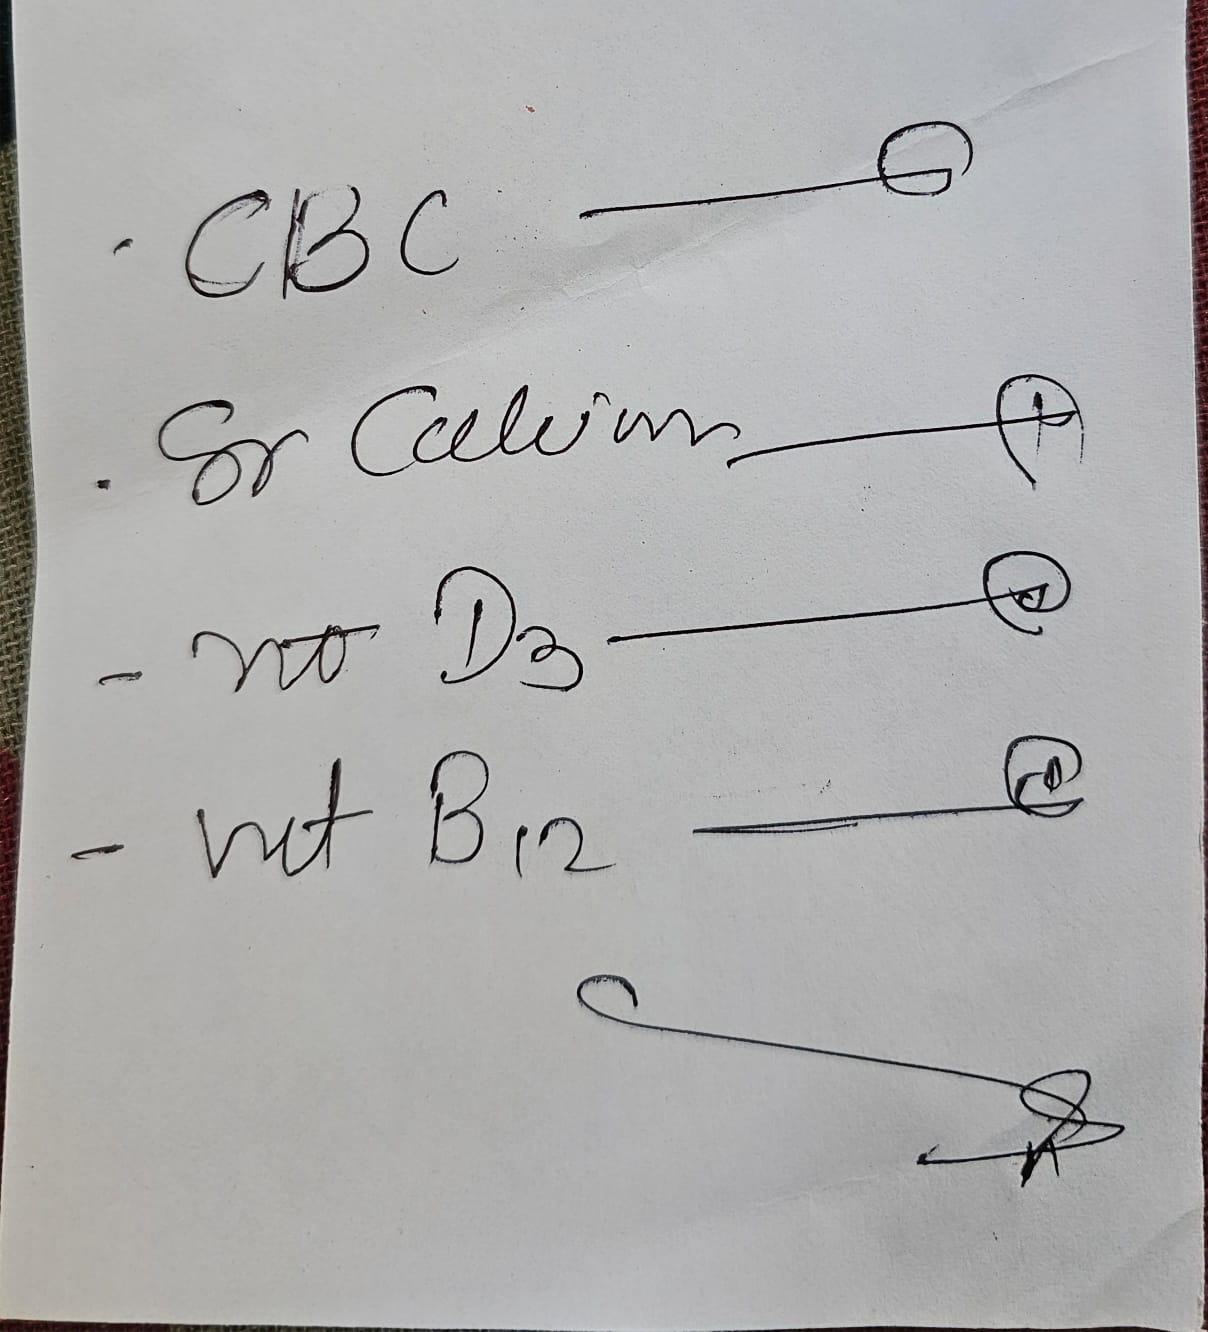 . CBC
. Sr Calcium
- vit D3
- vit B12